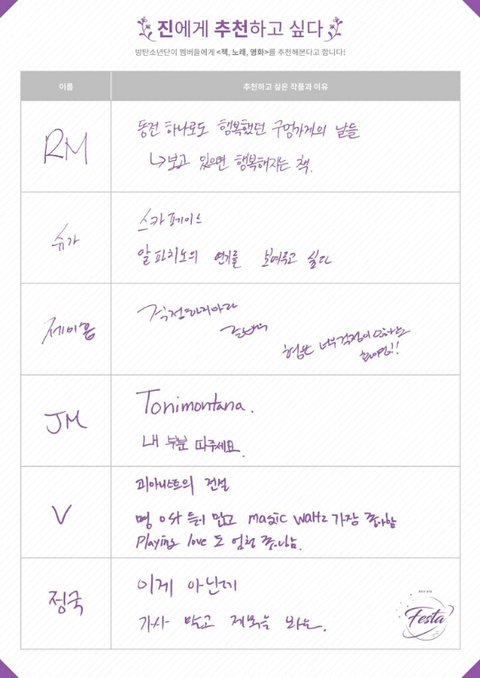 진에게 추천하고 싶다
방탄소년단이 멤버들에게 <책, 노래, 영화>를 추천해본다고 합니다!
이름
추천하고 싶은 작품과 이유
RM
동전 하나로도 행복했던 구멍가게의 날들
↳보고 있으면 행복해지는 책.
슈가
스카페이스
알파치노의 연기를 보여주고 싶다
제이홉
걱정하지마라
형은 너무 걱정이
JM
Tonimontana.
내 부분 따주세요.
V
피아니스트의 전설
명 magic waltz 가장 좋아함
Playing love 도 엄청 좋아함.
정국
이게 아닌데
가사 말고 제목을 봐요.
Festa